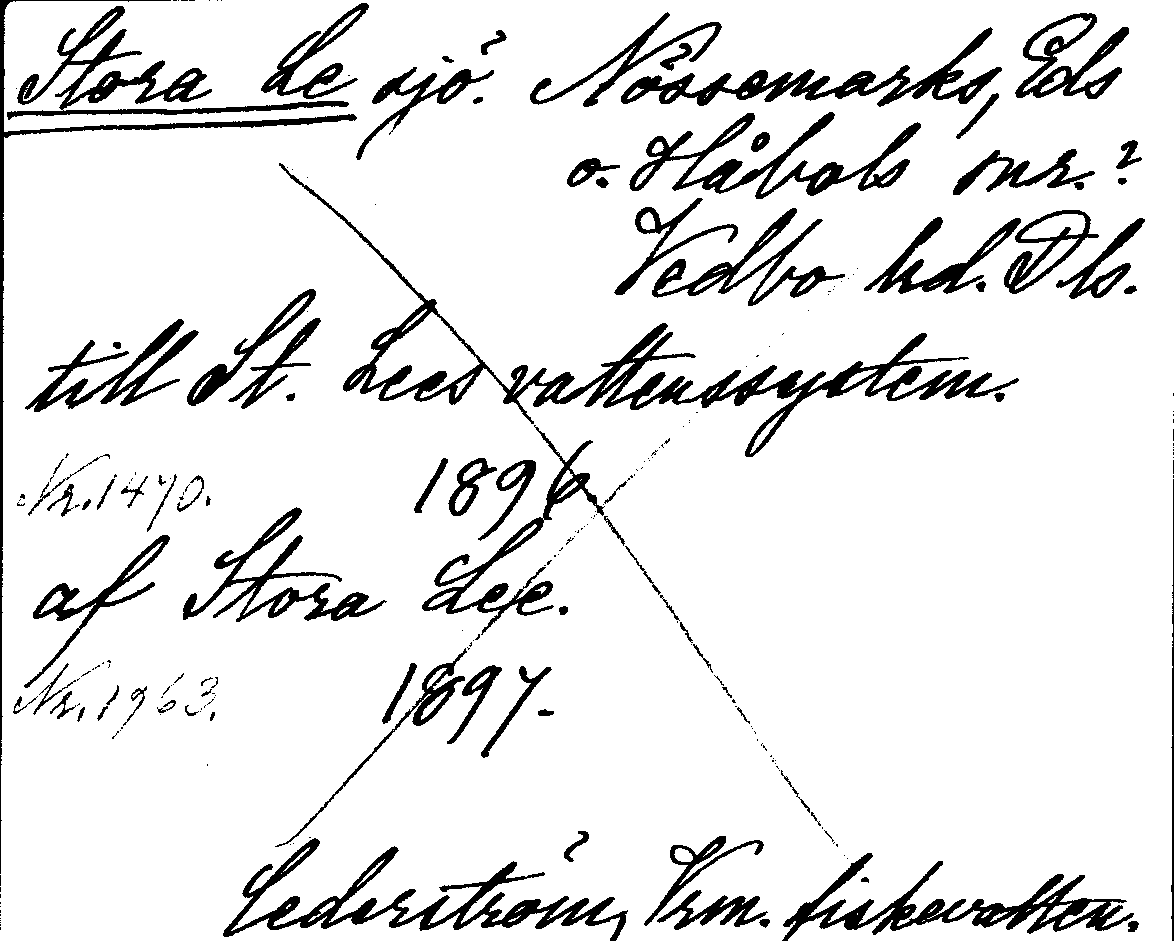 Stora Le sjö. Nössemarks, Eds
o. Håbols snr.?
Vedbo hd. Dls.
till St. Lees vattenssystem.
Nr. 1470. 1896
af Stora Lee.
Nr. 1963. 1897.
Cederström, Vrm. fiskevatten.